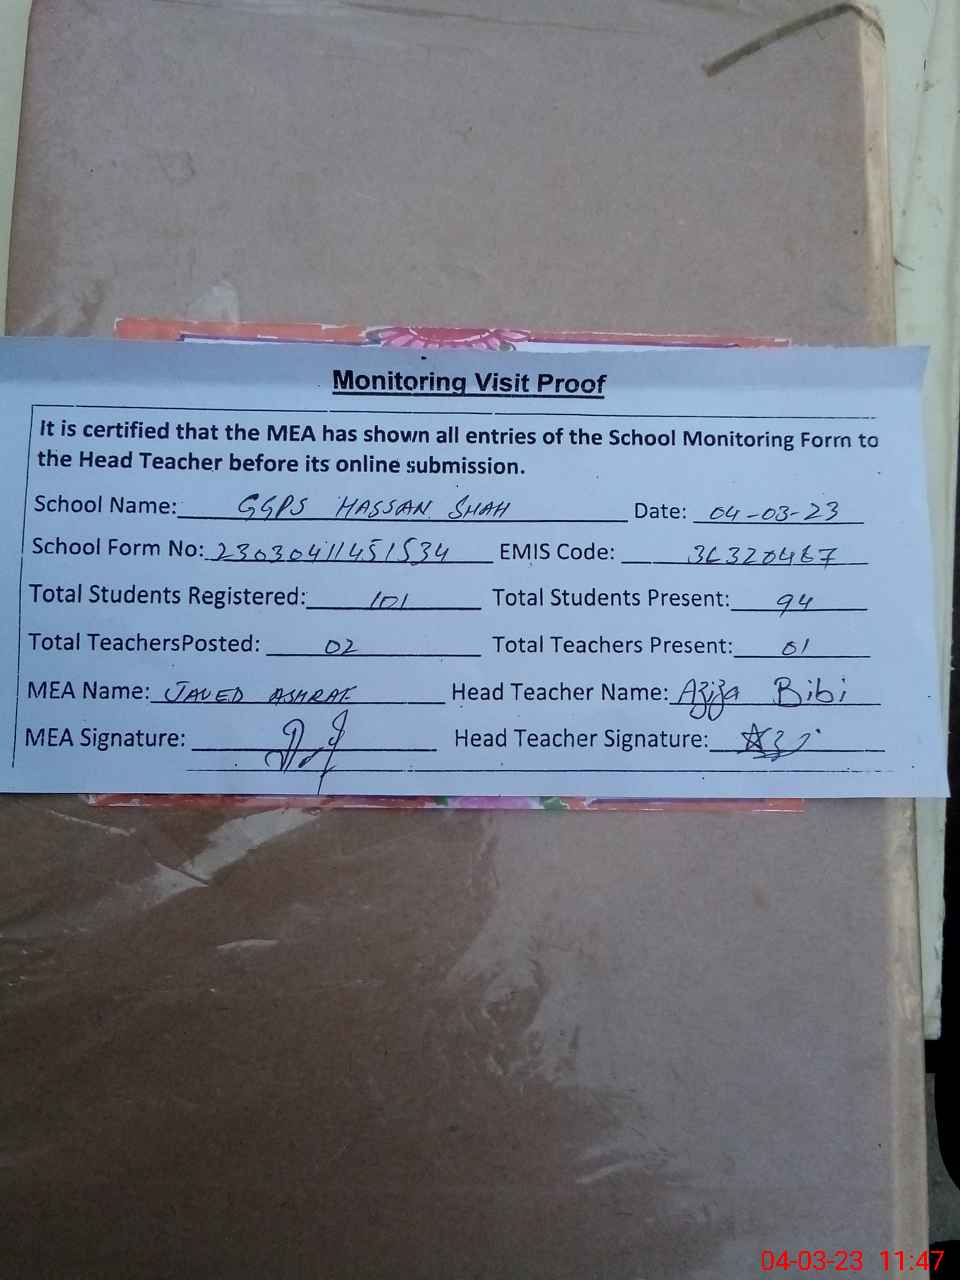 Monitoring Visit Proof
It is certified that the MEA has shown all entries of the School Monitoring Form to
the Head Teacher before its online submission.
School Name: GGPS HASSAN SHAH Date: 04-03-23
School Form No: 23030411451534 EMIS Code: 36320467
Total Students Registered: 101 Total Students Present: 94
Total TeachersPosted: 02 Total Teachers Present: 01
MEA Name: JAVED ASHRAF Head Teacher Name: Aziza Bibi
MEA Signature: Head Teacher Signature:
04-03-23 11:47